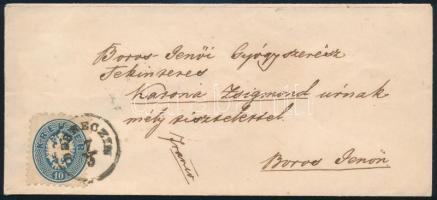 Boros-Jenői Gyógyszerész
Tekinteres
Katona Zsigmond úrnak
mély tisztelettel.
franco
Boros Jenőn
KREUZER
10
DEBRECZIN